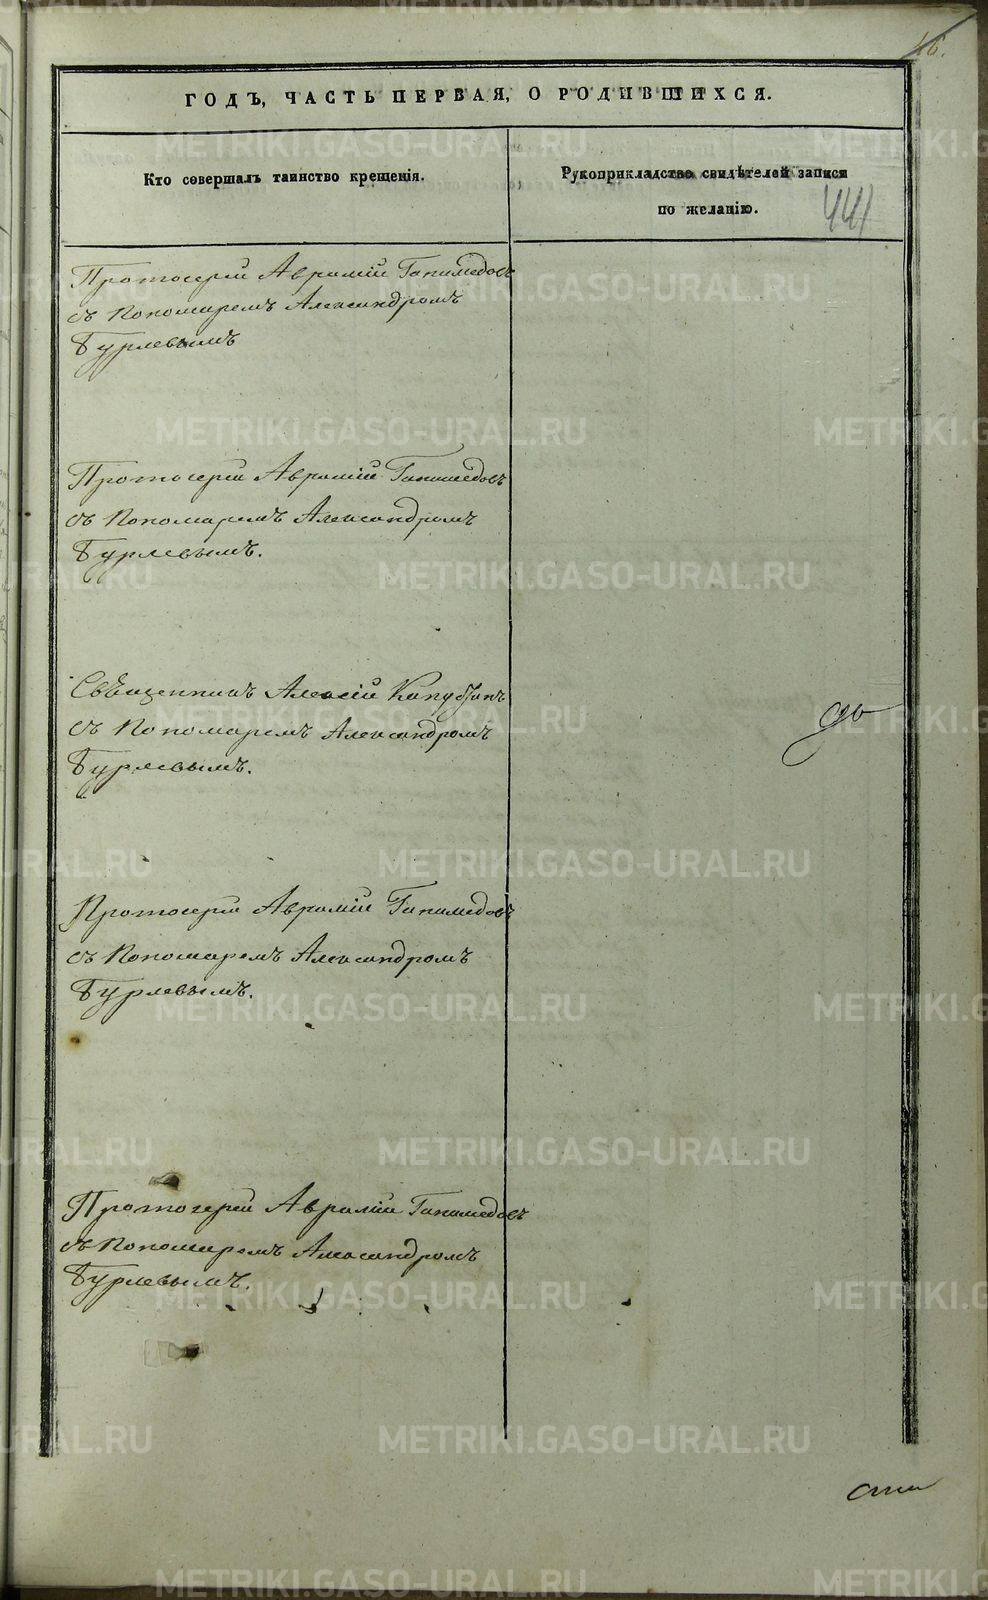 46.
ГОДЪ, ЧАСТЬ ПЕРВАЯ, О РОДИВШИХСЯ.
Кто совершалъ таинство крещенія.
Рукоприкладство свидѣтелей записи
по желанію.
441
Протоіерей Аврамій Ганимедовъ
съ Пономаремъ Александромъ
Бурлевымъ
Протоіерей Аврамій Ганимедовъ
съ Пономаремъ Александромъ
Бурлевымъ.
Священникъ Алексій
съ Пономаремъ Александромъ
Бурлевымъ.
Протоіерей Аврамій Ганимедовъ
съ Пономаремъ Александромъ
Бурлевымъ.
Протоіерей Аврамій Ганимедовъ
съ Пономаремъ Александромъ
Бурлевымъ.
METRIKI.GASO-URAL.RU